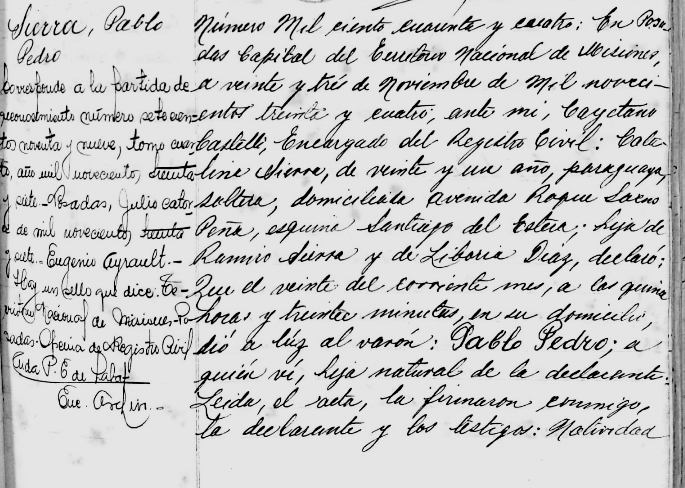 Sierra, Pablo
Pedro
Corresponde a la partida de
reconocimiento número setecien-
tos noventa y nueve, tomo cuar-
to, año mil noveciento, treinta
y siete.- Posadas, Julio cator-
ce de mil noveciento, treinta
y siete.- Eugenio Ayrault.-
Hay un sello que dice: Te-
rritorio Nacional de Misiones-Po-
sadas-Oficina de Registro Civil
Aida P. E de
Enc. Archivo.-
Número Mil ciento cuarenta y cuatro: En Posa-
das Capital del Territorio Nacional de Misiones,
a veinte y trés de Noviembre de Mil noveci-
entos treinta y cuatro, ante mi, Cayetano
Castelli, Encargado del Registro Civil: Cata-
lina Sierra, de veinte y un año, paraguaya,
soltera, domiciliada avenida Roque Saenz
Peña, esquina Santiago del Estero; hija de
Ramiro Sierra y de Liboria Diaz, declaró:
Que el veinte del corriente mes, a las quince
horas y treinta minutos, en su domicilio,
dió a lúz al varón: Pablo Pedro; a
quién ví, hijo natural de la declarante.
Leida, el acta, la firmaron conmigo,
la declarante y los testigos: Natividad